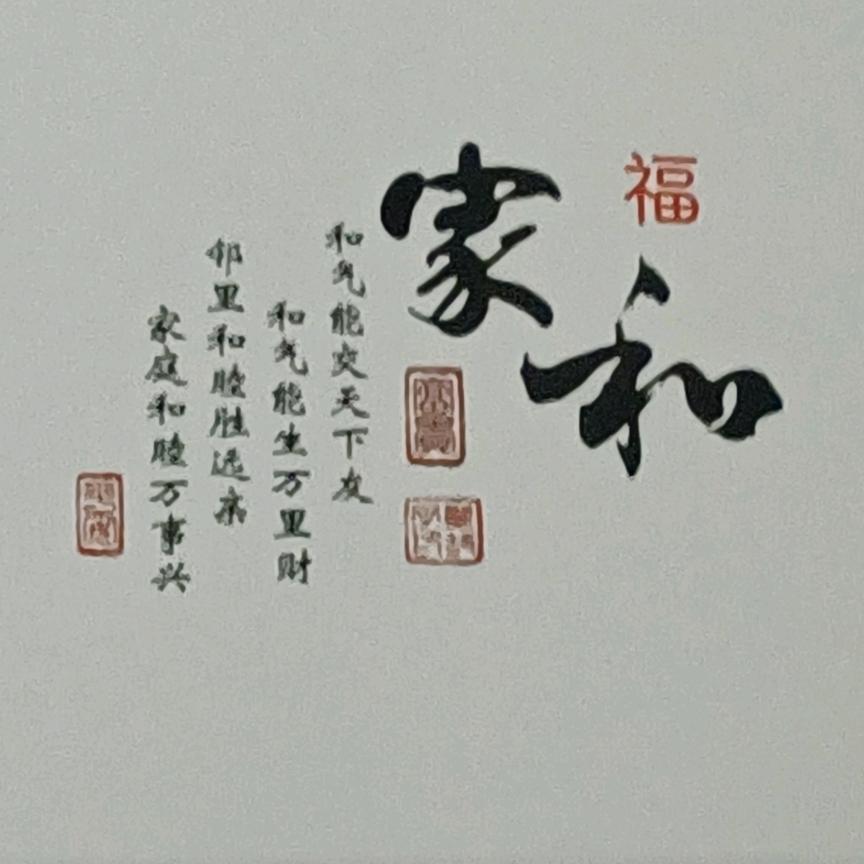 福
家和
和气能交天下友
和气能生万里财
邻里和睦胜远亲
家庭和睦万事兴